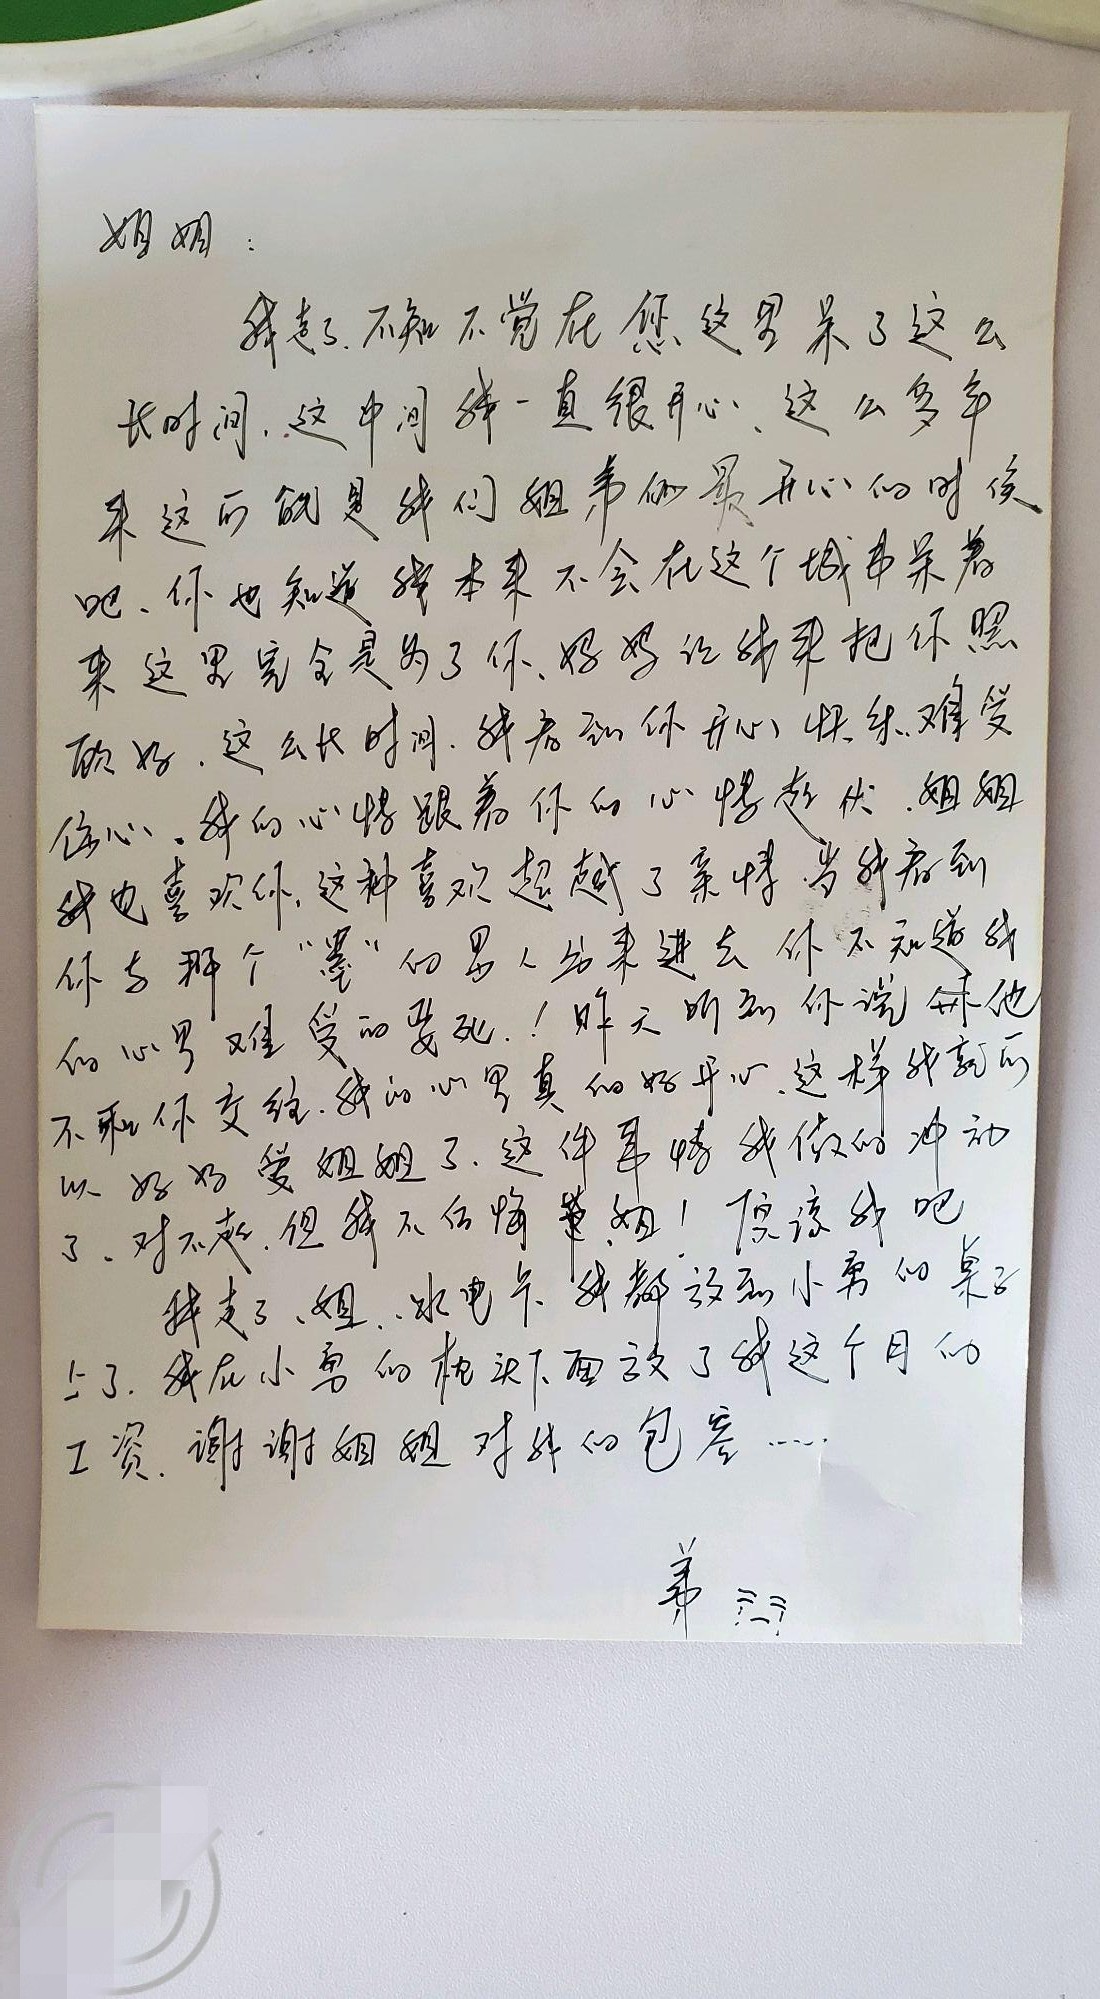 姐姐：
我走了、不知不觉在您这里呆了这么
长时间、这中间我一直很开心、这么多年
来这可能是我们姐弟俩最开心的时候
吧、你也知道我本来不会在这个城市呆着
来这里完全是为了你、妈妈让我来把你照
顾好、这么长时间、我看到你开心快乐、难受
伤心、我的心情跟着你的心情起伏、姐姐
我也喜欢你、这种喜欢超越了亲情、当我看到
你与那个“墨”的男人出来进去 你不知道我
的心里难受的要死！昨天听到你说 他
不和你交往、我的心里真的好开心、这样我就可
以好好爱姐姐了、这件事情我做的冲动
了、对不起、但我不后悔 姐！原谅我吧
我走了、姐、水电卡我都放到小勇的桌子
上了、我在小勇的枕头下面放了我这个月的
工资、谢谢姐姐对我的包容……
弟